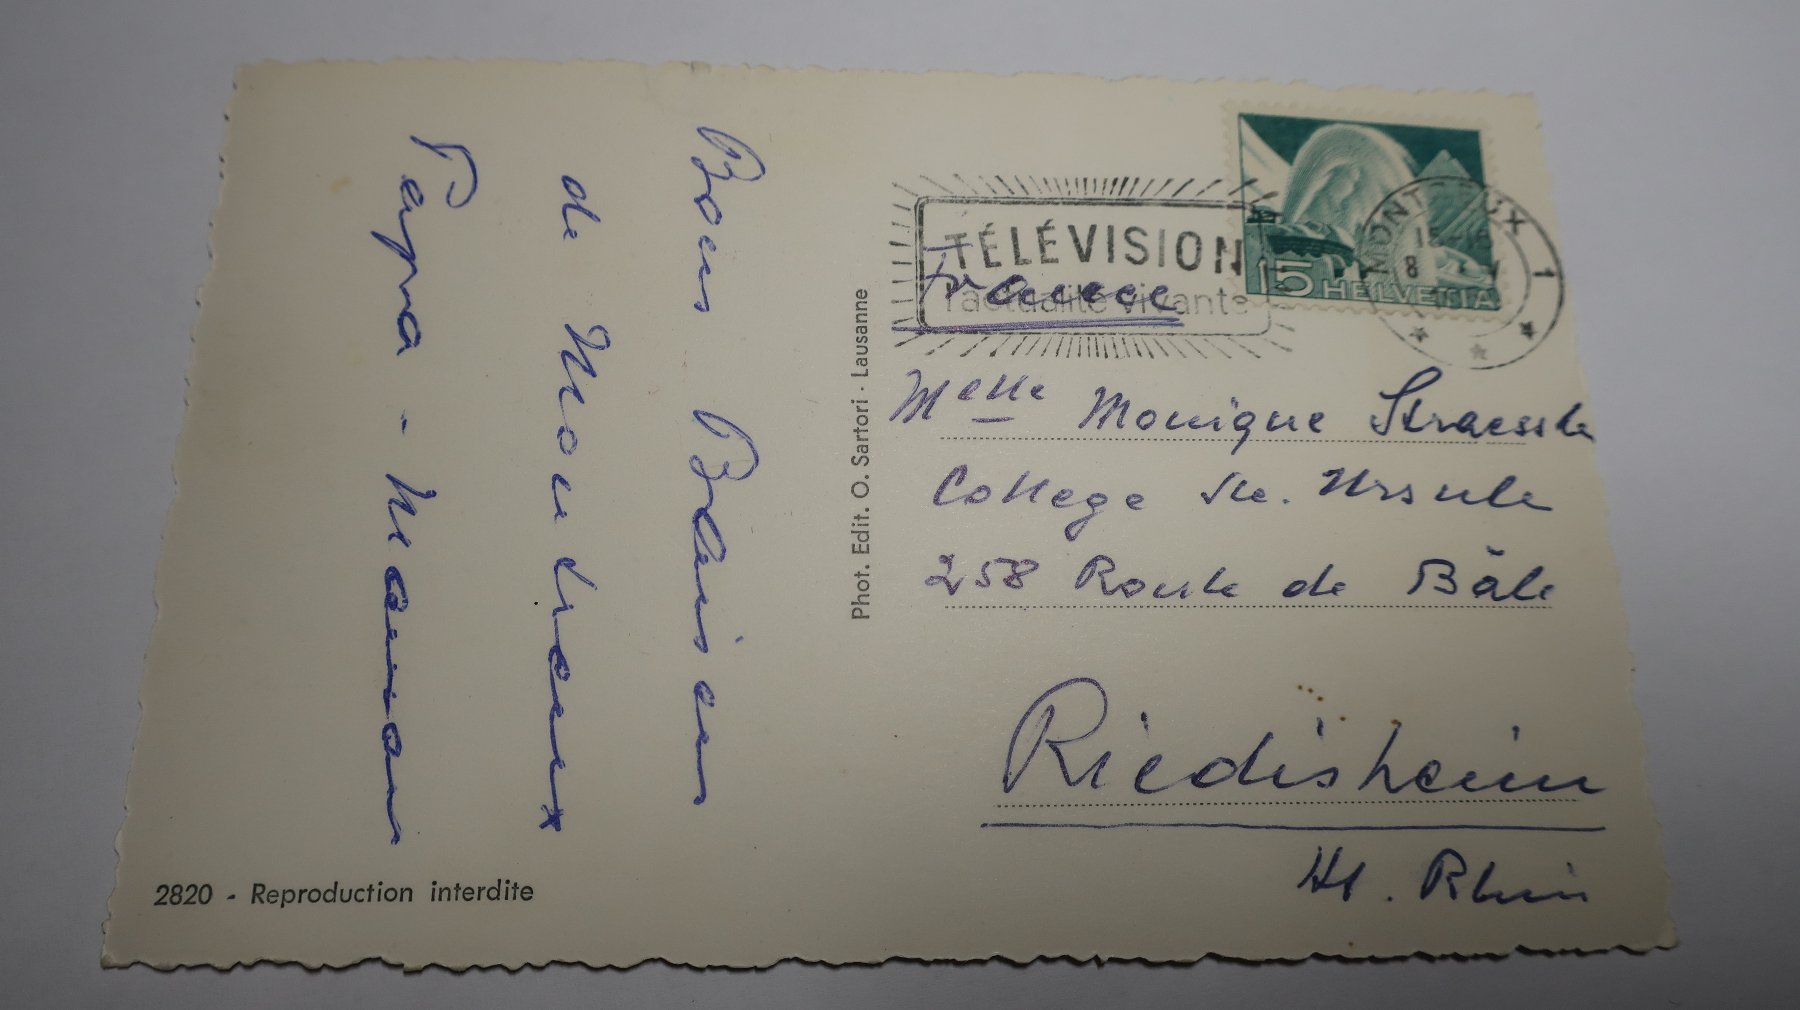 Bons Baisers
de Montreux
Papa - Maman
2820 - Reproduction interdite
Phot. Edit. O. Sartori · Lausanne
TÉLÉVISION
l'actualité vivante
15 HELVETIA
MONTREUX
1
15-16
8
France
Melle Monique Straessle
College Ste. Ursule
258 Route de Bâle
Riedisheim
Ht. Rhin